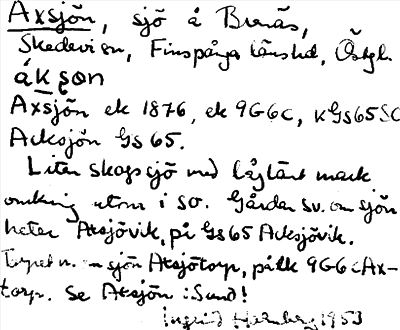 Axsjön, sjö å Brenäs,
Skedevi sn, Finspånga länshd, Östgl.
åkson
Axsjön ek 1876, ek 9G6c, KGs65SO
Acksjön Gs 65.
Liten skogssjö med låglänt mark
omkring utom i SO. Gården SV. om sjön
heter Axsjövik, på Gs65 Acksjövik.
Torpet n. om sjön Axsjötorp, på ek 9G6c Ax-
torp. Se Axsjön i Sund!
Ingrid Holmberg 1953